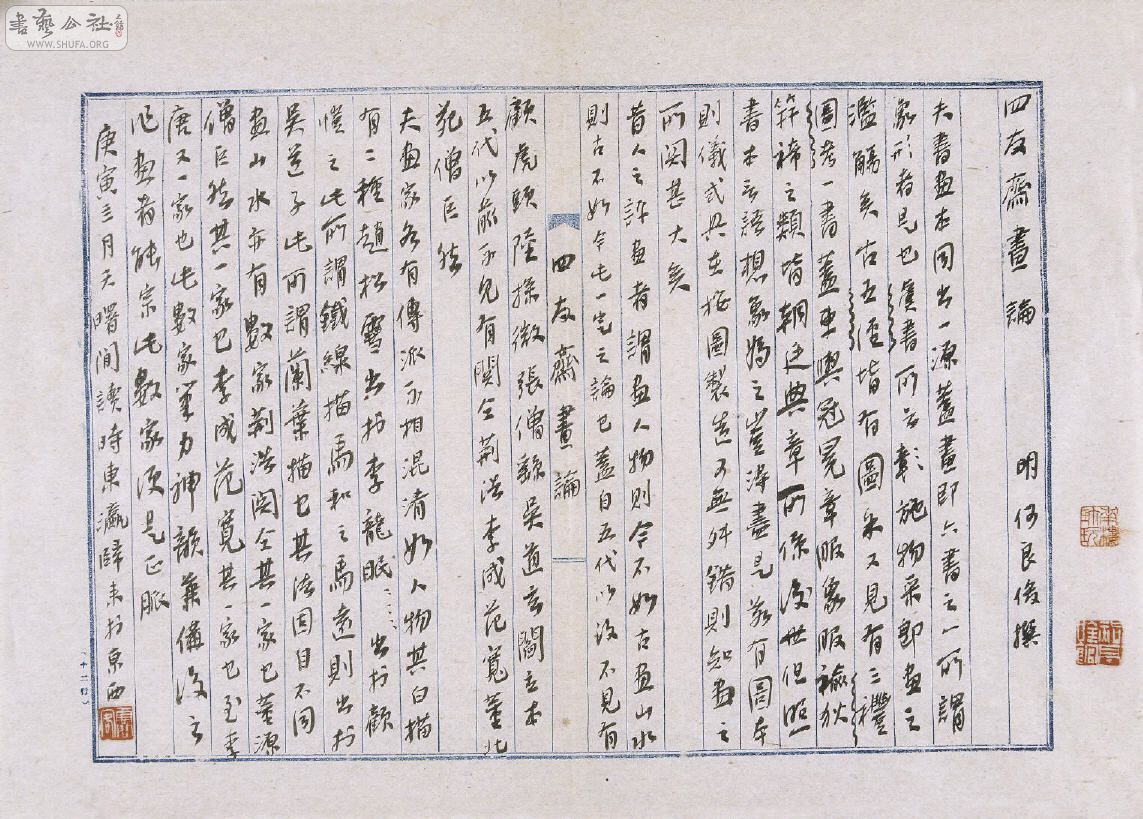 書藝公社
WWW.SHUFA.ORG
四友齋畫論 明何良俊撰
夫書畫本同出一源蓋畫即六書之一所謂
象形者是也虞書所云彰施物采即畫之
濫觴矣古五經皆有圖余又見有三禮
圖考一書蓋車輿冠冕章服象服褕狄
笄褅之類皆朝廷典章所係後世但照
書本言語想象為之豈得盡是若有圖本
則儀式具在按圖製造可無舛錯則知畫之
所關甚大矣
昔人之評畫者謂畫人物則今不如古畫山水
則古不如今此一定之論也蓋自五代以後不見有
四友齋畫論
顧虎頭陸探微張僧繇吳道玄閻立本
五代以前不見有關仝荊浩李成范寬董北
苑僧巨然
夫畫家各有傳派不相混淆如人物其白描
有二種趙松雪出於李龍眠〻〻〻出於顧
愷之此所謂鐵線描馬和之馬遠則出於
吳道子此所謂蘭葉描也其法固自不同
畫山水亦有數家荊浩關仝其一家也董源
僧巨然其一家也李成范寬其一家也至李
唐又一家也此數家筆力神韻兼備後之
作畫者能宗此數家便是正脈
庚寅三月天曙閣時東瀛歸來於京西